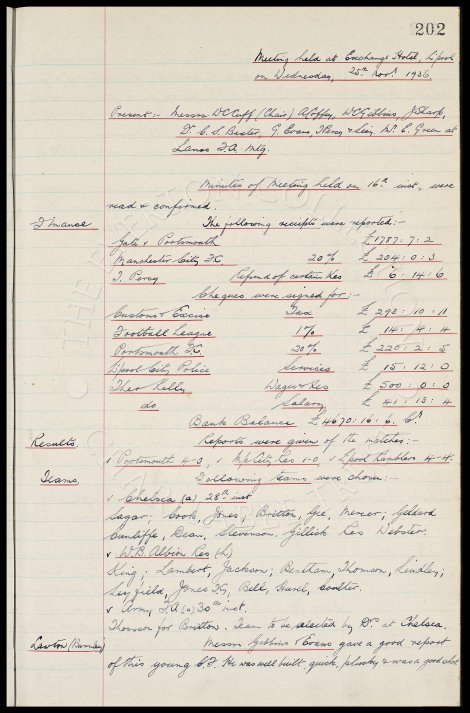 202
Meeting held at Exchange Hotel, L'pool
on Wednesday, 25th Novr 1936.
Present:- Messrs W.C. Cuff (Chair) A. Coffey, W.C. Gibbins, J. Sharp,
Dr. C.S. Baxter, G. Evans, T. Percy & Secy. Mr. E. Green at
Lancs F.A. Mtg.
Minutes of Meeting held on 16th inst. were
read & confirmed.
Finance The following receipts were reported:-
Gate v Portsmouth £1787:7:2
Manchester City F.C. 20% £204:0:3
T. Percy Refund of certain Xes £6:14:6
Cheques were signed for:-
Customs & Excise Tax £293:10:11
Football League 1% £14:4:4
Portsmouth F.C. 20% £220:2:5
L'pool City Police Services £15:12:0
Theo Kelly Wages & Xes £500:0:0
do Salary £41:13:4
Bank Balance £4670:16:6. Cr.
Results. Reports were given of the matches:-
v Portsmouth 4-0, v M/c City Res 1-0, v L'pool Ramblers 4-4.
Teams. Following teams were chosen:-
v Chelsea (a) 28th inst
Sagar; Cook, Jones; Britton, Gee, Mercer; Geldard
Cunliffe, Dean, Stevenson. Gillick Res Webster.
v W.B. Albion Res (h)
King; Lambert, Jackson; Bentham, Thomson, Lindley;
Leyfield, Jones T.G., Bell, Hurel, Coulter.
v Army F.A. (a) 30th inst.
Thomson for Britton. Team to be selected by Drs at Chelsea.
Lawton (Burnley) Messrs Gibbins & Evans gave a good report
of this young C.F. He was well built quick, plucky & was a good shot